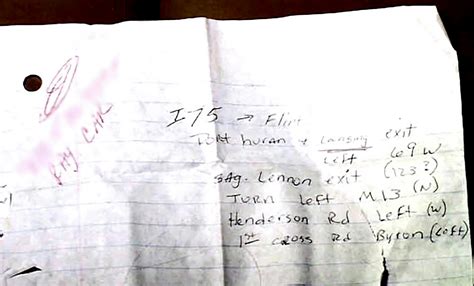 MY CAR
I75 → Flin
Port huran + Lansing exit
Left 69 W
Sag. Lennon exit (123?)
TURN Left M13 (N)
Henderson Rd Left (W)
1st cross Rd Byron (Left)